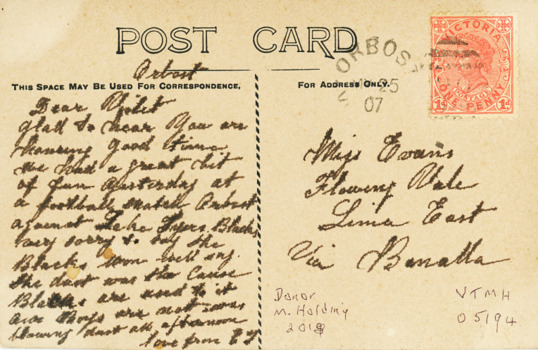 POST CARD
Orbost
THIS SPACE MAY BE USED FOR CORRESPONDENCE.
Dear
glad to hear you are
haveing good time
we had a great bit
of fun yesterday at
a football match Orbost
against Lake Tyers Blacks
very sorry to say the
Blacks won well
the dust was the cause
Blacks are used to it
our Boys are not was
blowing dust all afternoon
love from
FOR ADDRESS ONLY.
ORBOST
25
07
VICTORIA
POSTAGE
1d ONE PENNY 1d
Miss Evans
Flowing Vale
Lima East
Via Benalla
Donor
M. Holding
2018
VTMH
05194